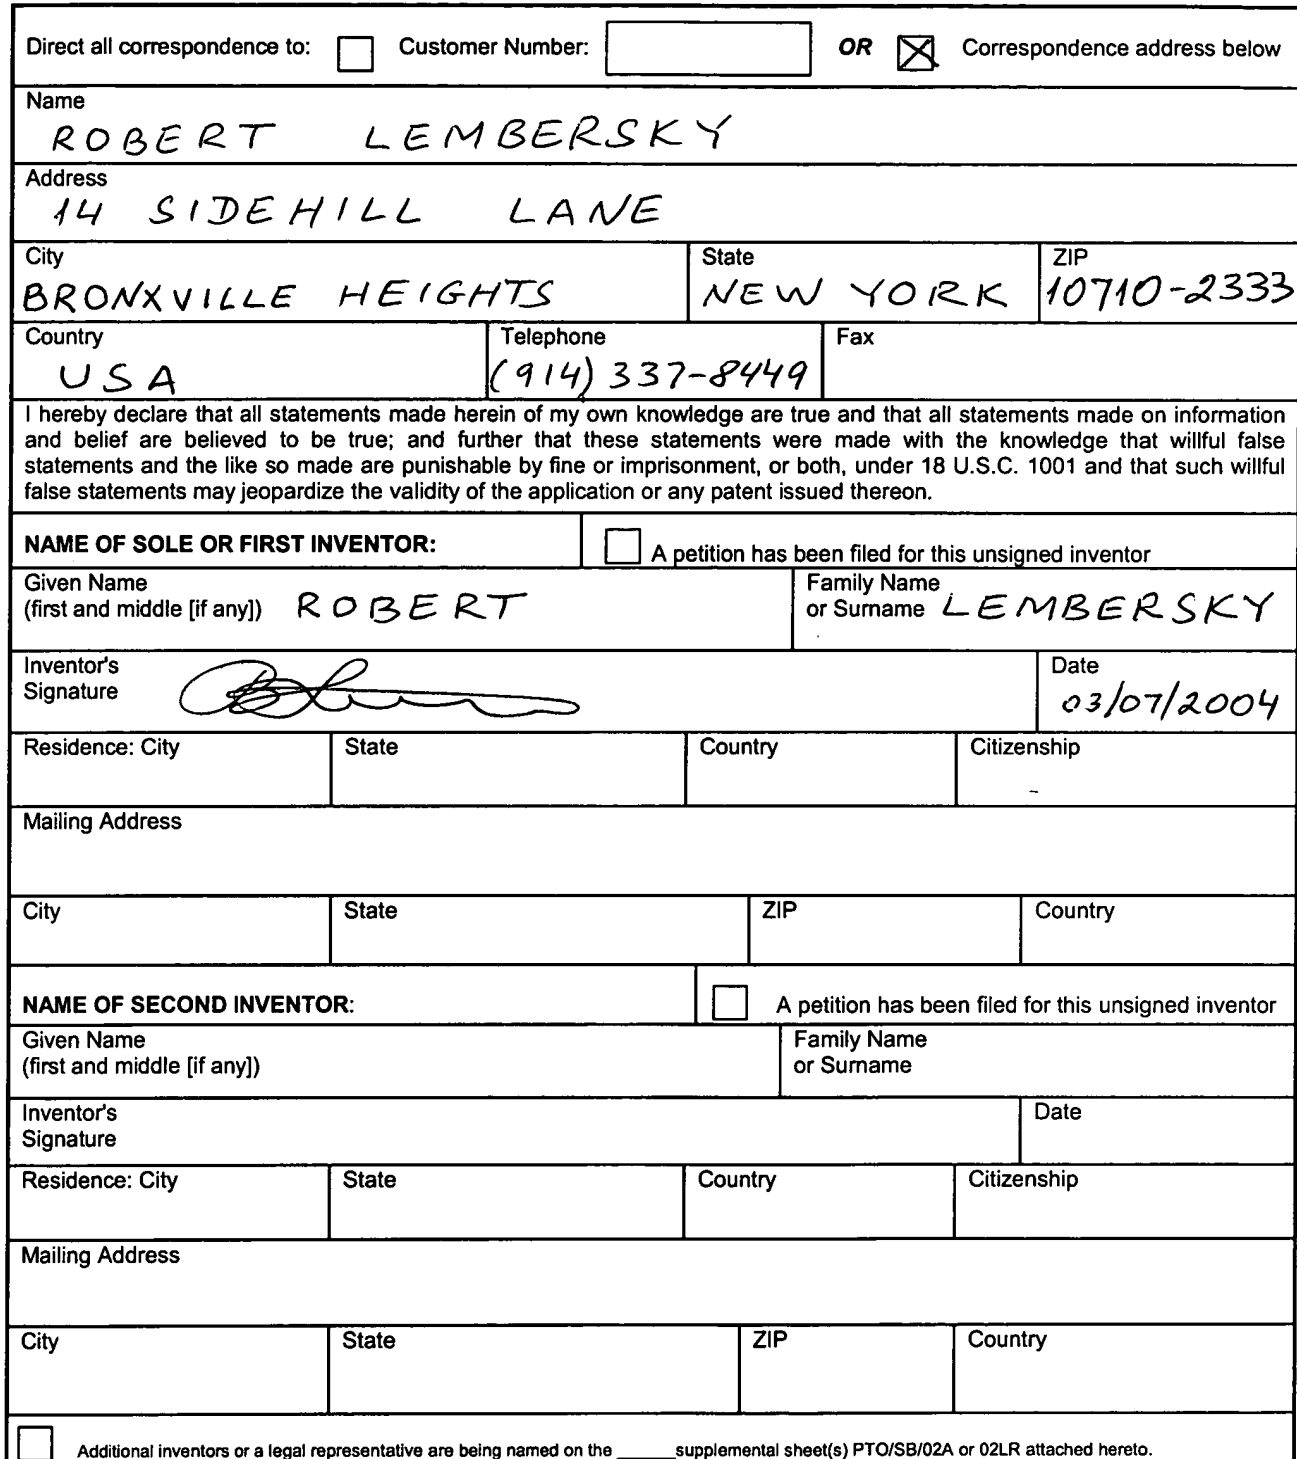 Direct all correspondence to: Customer Number: OR Correspondence address below
Name
ROBERT LEMBERSKY
Address
14 SIDEHILL LANE
City State ZIP
BRONXVILLE HEIGHTS NEW YORK 10710-2333
Country Telephone Fax
USA (914) 337-8449
I hereby declare that all statements made herein of my own knowledge are true and that all statements made on information
and belief are believed to be true; and further that these statements were made with the knowledge that willful false
statements and the like so made are punishable by fine or imprisonment, or both, under 18 U.S.C. 1001 and that such willful
false statements may jeopardize the validity of the application or any patent issued thereon.
NAME OF SOLE OR FIRST INVENTOR: A petition has been filed for this unsigned inventor
Given Name Family Name
(first and middle [if any]) ROBERT or Surname LEMBERSKY
Inventor's Date
Signature 03/07/2004
Residence: City State Country Citizenship
Mailing Address
City State ZIP Country
NAME OF SECOND INVENTOR: A petition has been filed for this unsigned inventor
Given Name Family Name
(first and middle [if any]) or Surname
Inventor's Date
Signature
Residence: City State Country Citizenship
Mailing Address
City State ZIP Country
Additional inventors or a legal representative are being named on the ______ supplemental sheet(s) PTO/SB/02A or 02LR attached hereto.